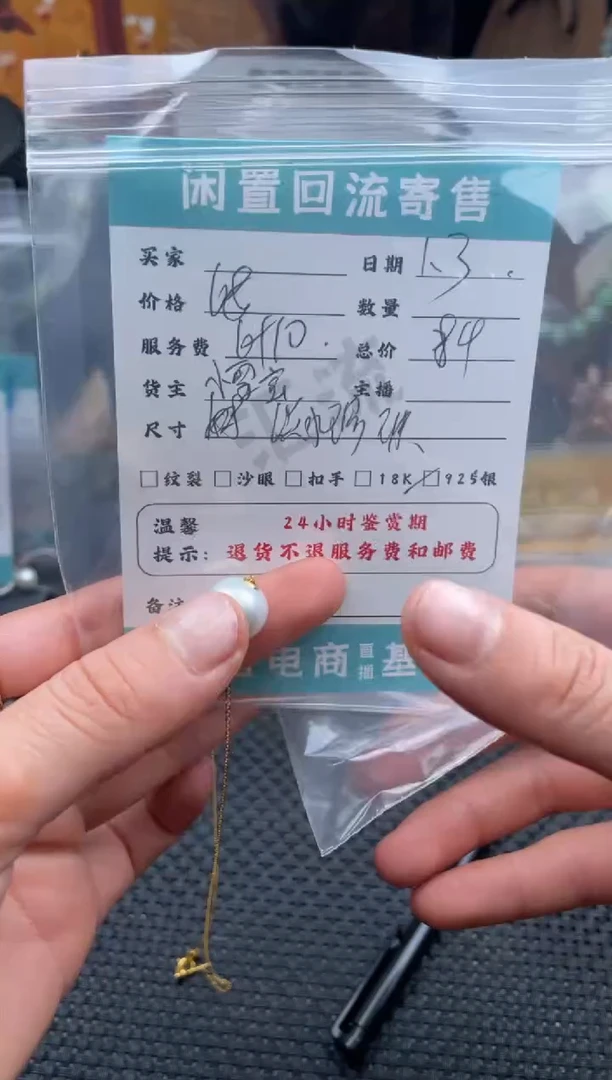 闲置回流寄售
买家 日期 1.3.
价格 68 数量
服务费 6+10. 总价 84
货主 主播
尺寸 淡水珍珠
□纹裂 □沙眼 □扣手 □18K □925银
温馨 24小时鉴赏期
提示: 退货不退服务费和邮费
备注
电商直播基